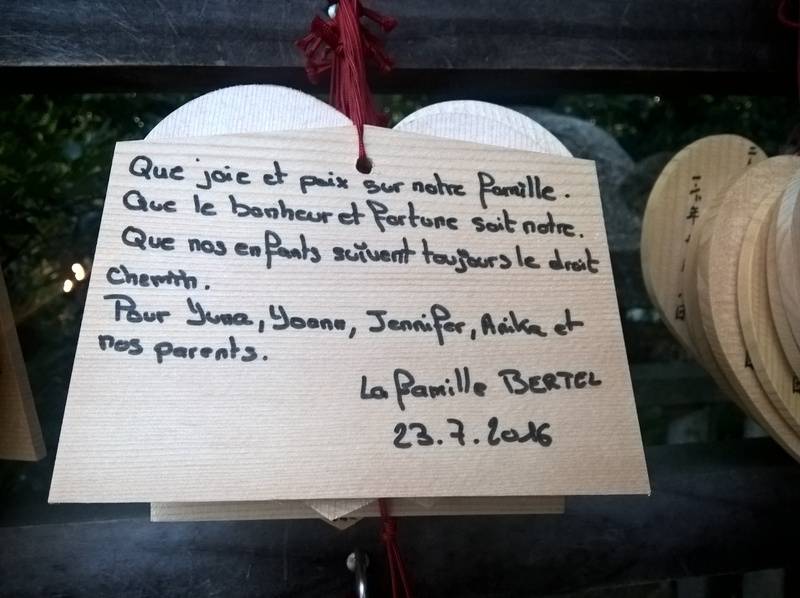 Que joie et paix sur notre famille.
Que le bonheur et fortune soit notre.
Que nos enfants suivent toujours le droit
chemin.
Pour Yuna, Yoann, Jennifer, Anika et
nos parents.
La famille BERTEL
23.7.2016